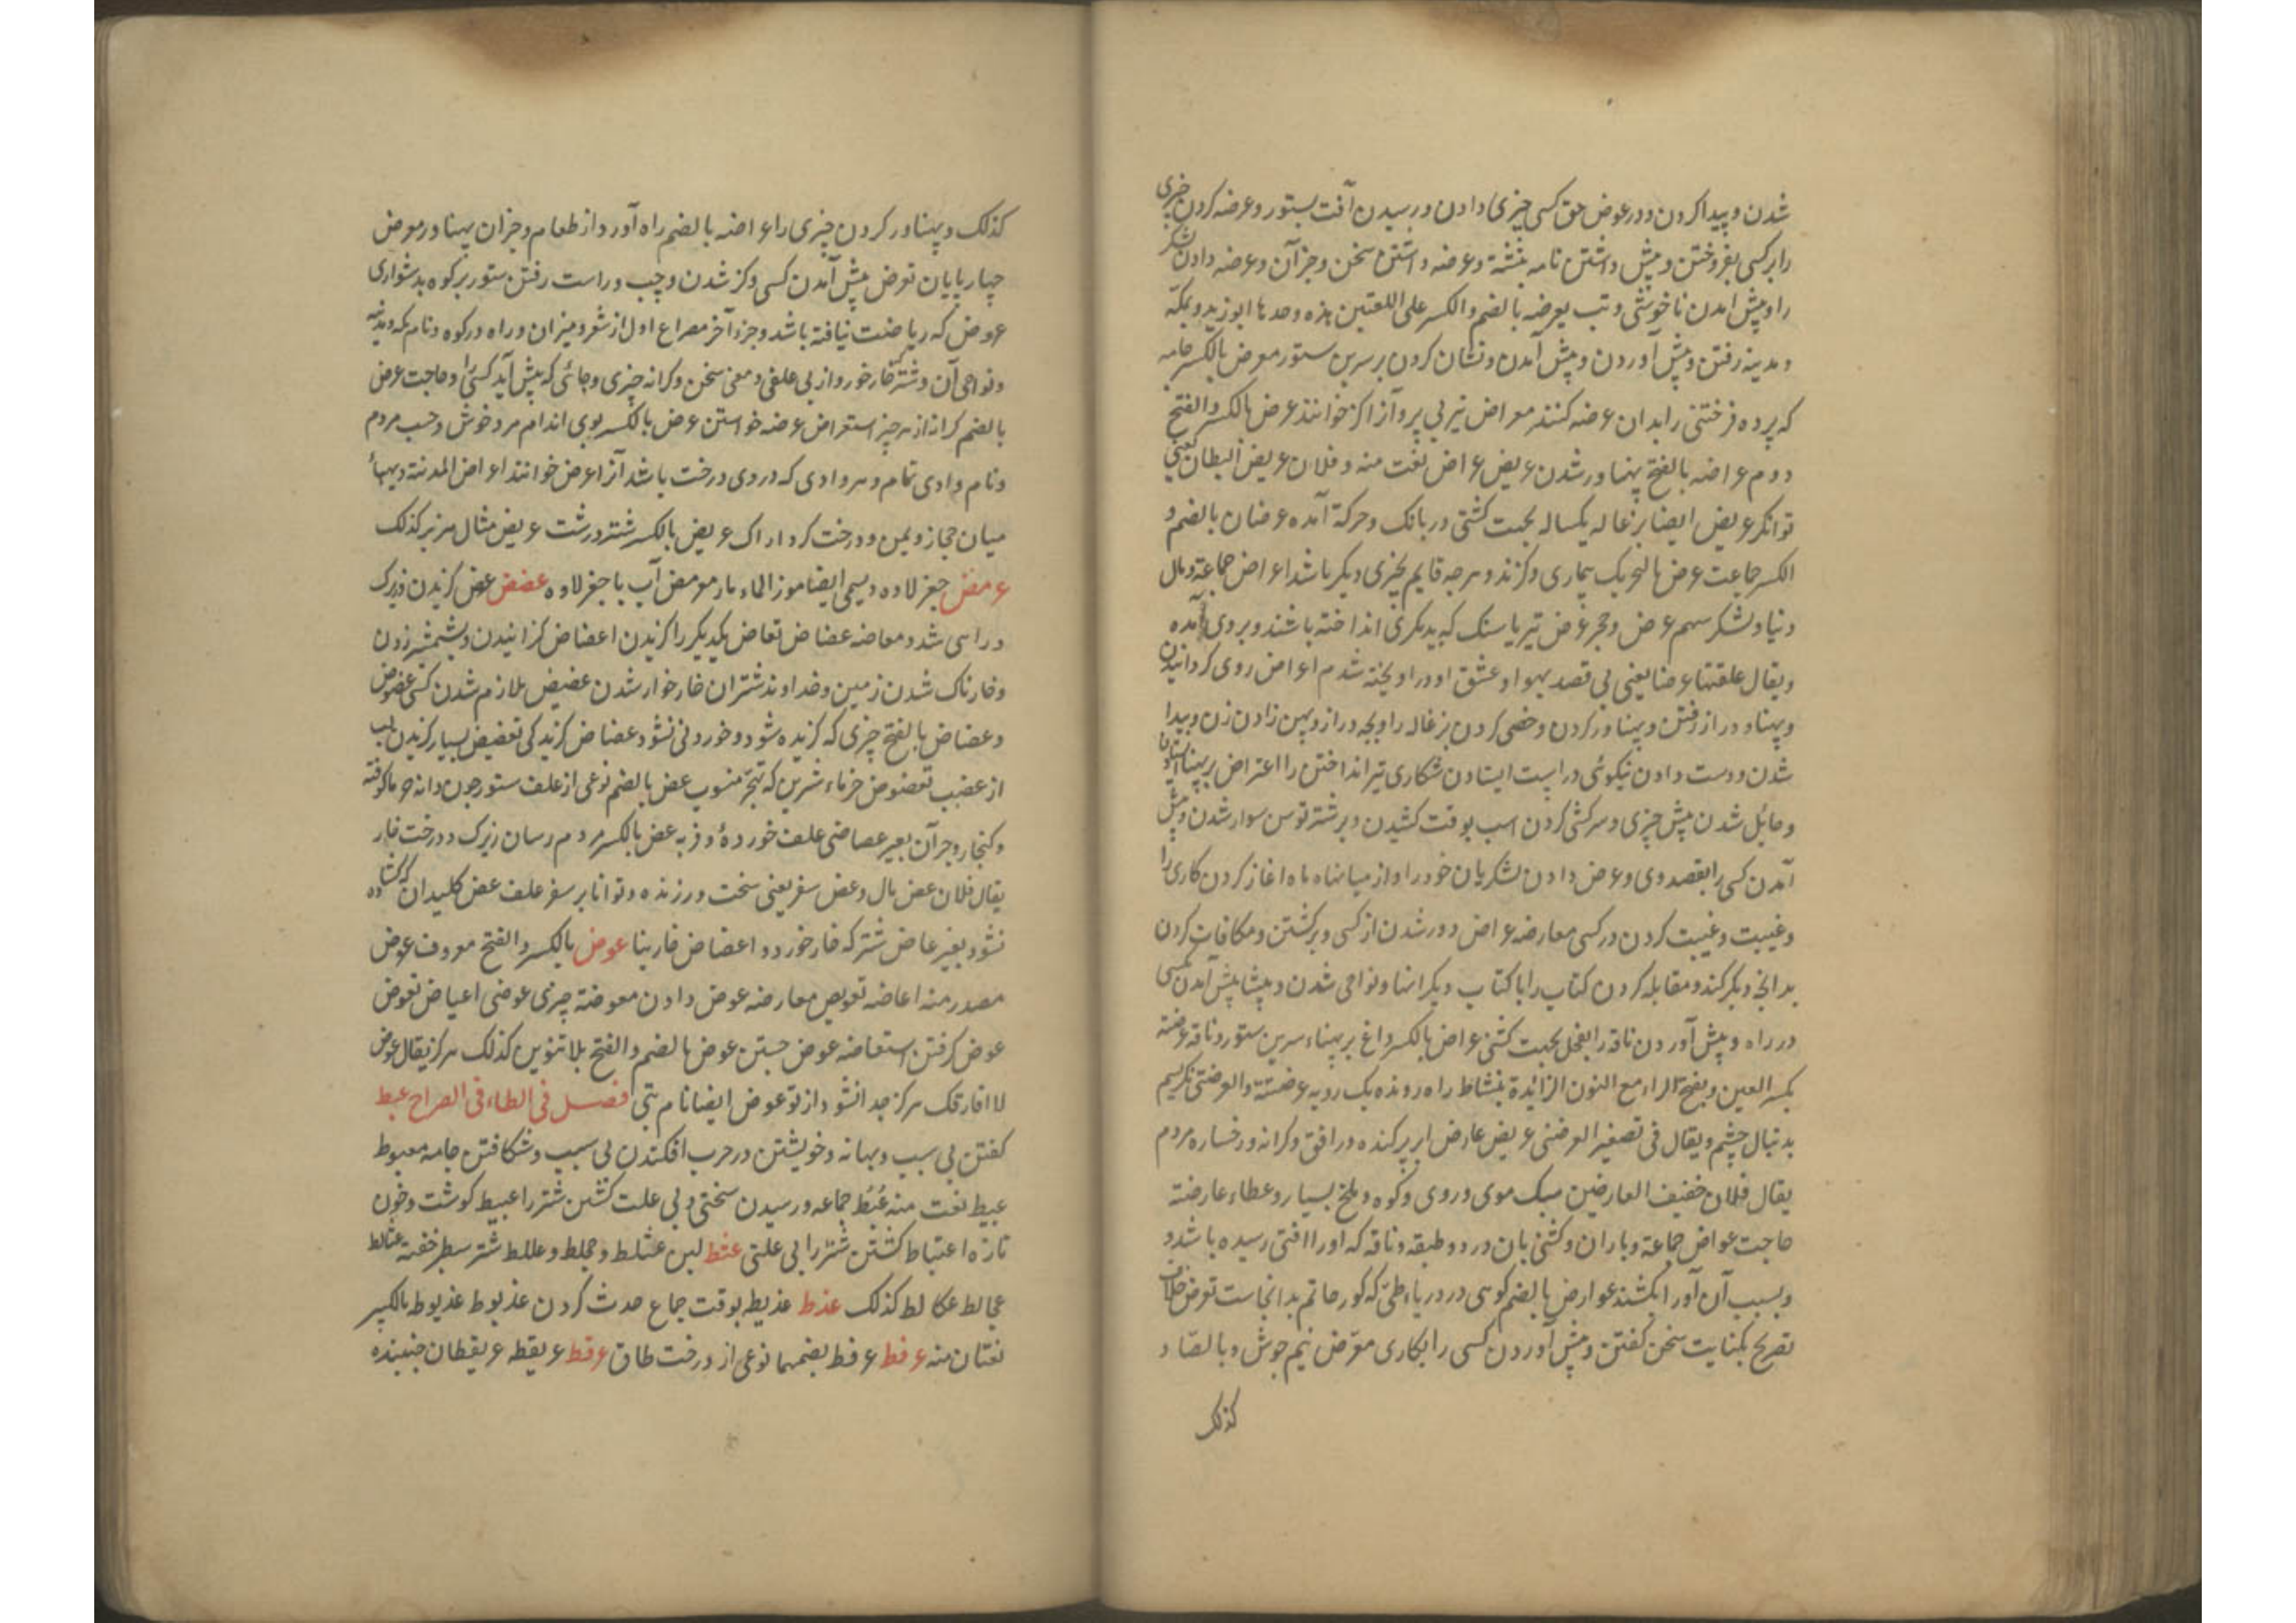 شدن و پیدا کردن و در عوض حق کسی چیزی دادن و رسیدن آفت بستور و عرضه کردن چیزی
را بر کسی بفروختن و پیش داشتن نامه بنشته و عرضه داشتن سخن و جز آن و عرضه دادن لشکر
را و پیش امدن ناخوشی و تب یعرضه بالضم و الکسر علی اللغتین هذه وحدها ابو زید و بمکه
و مدینه رفتن و پیش آوردن و پیش آمدن و نشان کردن بر سرین ستور معرض بالکسر جامه
که برده فرختنی را بدان عرضه کنند معراض تیر بی پر و آنرا کز خوانند عرض بالکسر و الفتح
دوم عراضه بالفتح پهناور شدن عریض عراض نعت منه و فلان عریض البطان یعنی
توانکر عریض ایضا بزغاله یکساله بجهت کشتی در بانک و حرکة آمده عرضان بالضم و
الکسر جماعت عرض بالتحریک بیماری و کزند و هرچه قایم بچیزی دیکر باشد اعراض جماعة و مال
دنیا و لشکر سهم عرض و حجر عرض تیر یا سنک که بدیکری انداخته باشند و بر وی آمده
و یقال علقتها عرضا یعنی بی قصد بهوا و عشق او در اویخته شدم اعراض روی کردانیدن
و پهنا و دراز رفتن و پهناور کردن و خصی کردن بزغاله را و بچه دراز و پهن زادن زن و پیدا
شدن و دست دادن نیکوئی و راست ایستادن شکاری تیر انداختن را اعتراض بر پهنا
و حائل شدن پیش چیزی و سرکشی کردن اسب بوقت کشیدن و بر شتر توسن سوار شدن و پیش
آمدن کسی را بقصد وی و عرض دادن لشکریان خود را و از میانهاه ماه اغاز کردن کاری را
و غیبت کردن در کسی معارضه عراض دور شدن از کسی و برکشتن و مکافات کردن
بدانچه دیکر کند و مقابله کردن کتاب را با کتاب دیکر انها و نواحی شدن و پیشا پیش آمدن کسی
در راه و پیش آوردن ناقه را بفحل بجهت کشنی عراض بالکسر داغ بر پهناء سرین ستور و ناقه عرضنه
بکسر العین و بفتح الراء مع النون الزائدة بنشاط راه رونده یک رویه عرضنة و العرضنی نکریم
بدنبال چشم و یقال فی تصغیر العرضنی عریض عارض ابر پرکنده در افق و کرانه و رخساره مردم
یقال فلان خفیف العارضین سبک موی در روی و کوه و ملخ بسیار و عطاء عارضة
حاجت عوارض جماعة و باران و کشنی بان در دو طبقه و ناقه که او را افتی رسیده باشد و
و بسبب آن آورا بکشند عوارض بالضم کوهی در دریاء طیّ که کور حاتم بدانجاست تعرض خلاف
تصریح بکنایت سخن کفتن و پیش آوردن کسی را بکاری معرّض نیم جوش و بالصاد
کذلک
کذلک و پهناور کردن چیزی را عراضه بالضم راه آورد از طعام و جز ان پهناور معرض
چهارپایان تعرض پیش آمدن کسی و کز شدن و چپ و راست رفتن ستور بر کوه بدشواری
عروض که ریاضت نیافته باشد و جزو آخر مصراع اول از شعر و میزان و راه در کوه و نام مکه و مدینه
و نواحی آن و شتر که خار خورد از بی علفی و معنی سخن و کرانه چیزی و جائی که پیش آید کسی را و حاجت عرض
بالضم کرانه از هر چیز استعراض عرضه خواستن عرض بالکسر بوی اندام مرد و خوش و حسب مردم
و نام وادی تمام و هر وادی که در وی درخت باشد آنرا عرض خوانند اعراض المدینة دیهاء
میان حجاز و یمن و درخت کرد اراک عریض بالکسر شتر درشت عریض مثال هزبر کذلک
عرمض جغز لاوه و یسمی ایضا موز الماء مارد معرمض آب با جغز لاوه عضض عض کزیدن و زیرک
و داهی شدو معاضه عضاض تعاض یکدیکر را کزیدن اعضاض کزانیدن و بشمشیر زدن
و خارناک شدن زمین و خداوند شتران خارخوار شدن عضیض ملازم شدن کسی عضوض
و عضاض بالفتح چیزی که کزیده شود و خورده نشود عضاض کزندکی تعضیض بسیار کزیدن لب
از غضب تعضوض خرماء شرین که تهجر منسوب عض بالضم نوعی از علف ستور چون دانه خرما کوفته
و کنجار و جز آن بعیر عضاضی علف خورده و فربه عض بالکسر مردم رسان زیرک و درخت خار
یقال فلان عض مال و عض سفر یعنی سخت ورزنده و توانا بر سفر علف عض کلیدان که کشاده
نشود بعیر عاض شتر که خار خورد و اعضاض خاربنا عوض بالکسر و الفتح معروف عوض
مصدر منه اعاضه تعویض معارضه عوض دادن معوضة چیزی عوضی اعتیاض تعوض
عوض کرفتن استعاضه عوض جستن عوض بالضم و الفتح بلا تنوین کذلک هرکز یقال عوض
لا افارقک هرکز جدا نشود از تو عوض ایضا نام بتی فصل فی الطاء فی الصراح عبط
کفتن بی سبب و بهانه و خویشتن در حرب افکندن بی سبب و شکافتن جامه معبوط
عبیط نعت منه عُبُط جماعه و رسیدن سختی و بی علت کشتن شتر را عبیط کوشت و خون
تازه اعتباط کشتن شتر را بی علتی عثط لبن عثلط و عجلط و عللط شتر سطبر خفته عثالط
عجالط عکالط کذلک عذط عذیطه بوقت جماع حدث کردن عذیوط عذیوطه بالکسر
نعتان منه عرفط عرفط بضمهما نوعی از درخت طاق عرقط عریقطه عریقطان جنبنده